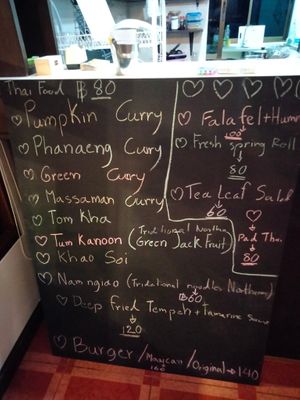 Thai Food ฿ 80
Pumpkin Curry
Phanaeng Curry
Green Curry
Massaman Curry
Tom Kha
Tum Kanoon (Green Jack Fruit)
Khao Soi
Nam ngiao (Tridational nyudles Northern)
60
Deep Fried Tempeh + Tamarine
120
Burger / Maycan / Original → 140
160
Falafel + Humm
100
Fresh Spring Roll
80
Tea Leaf Salad
60
Pad Thai
80